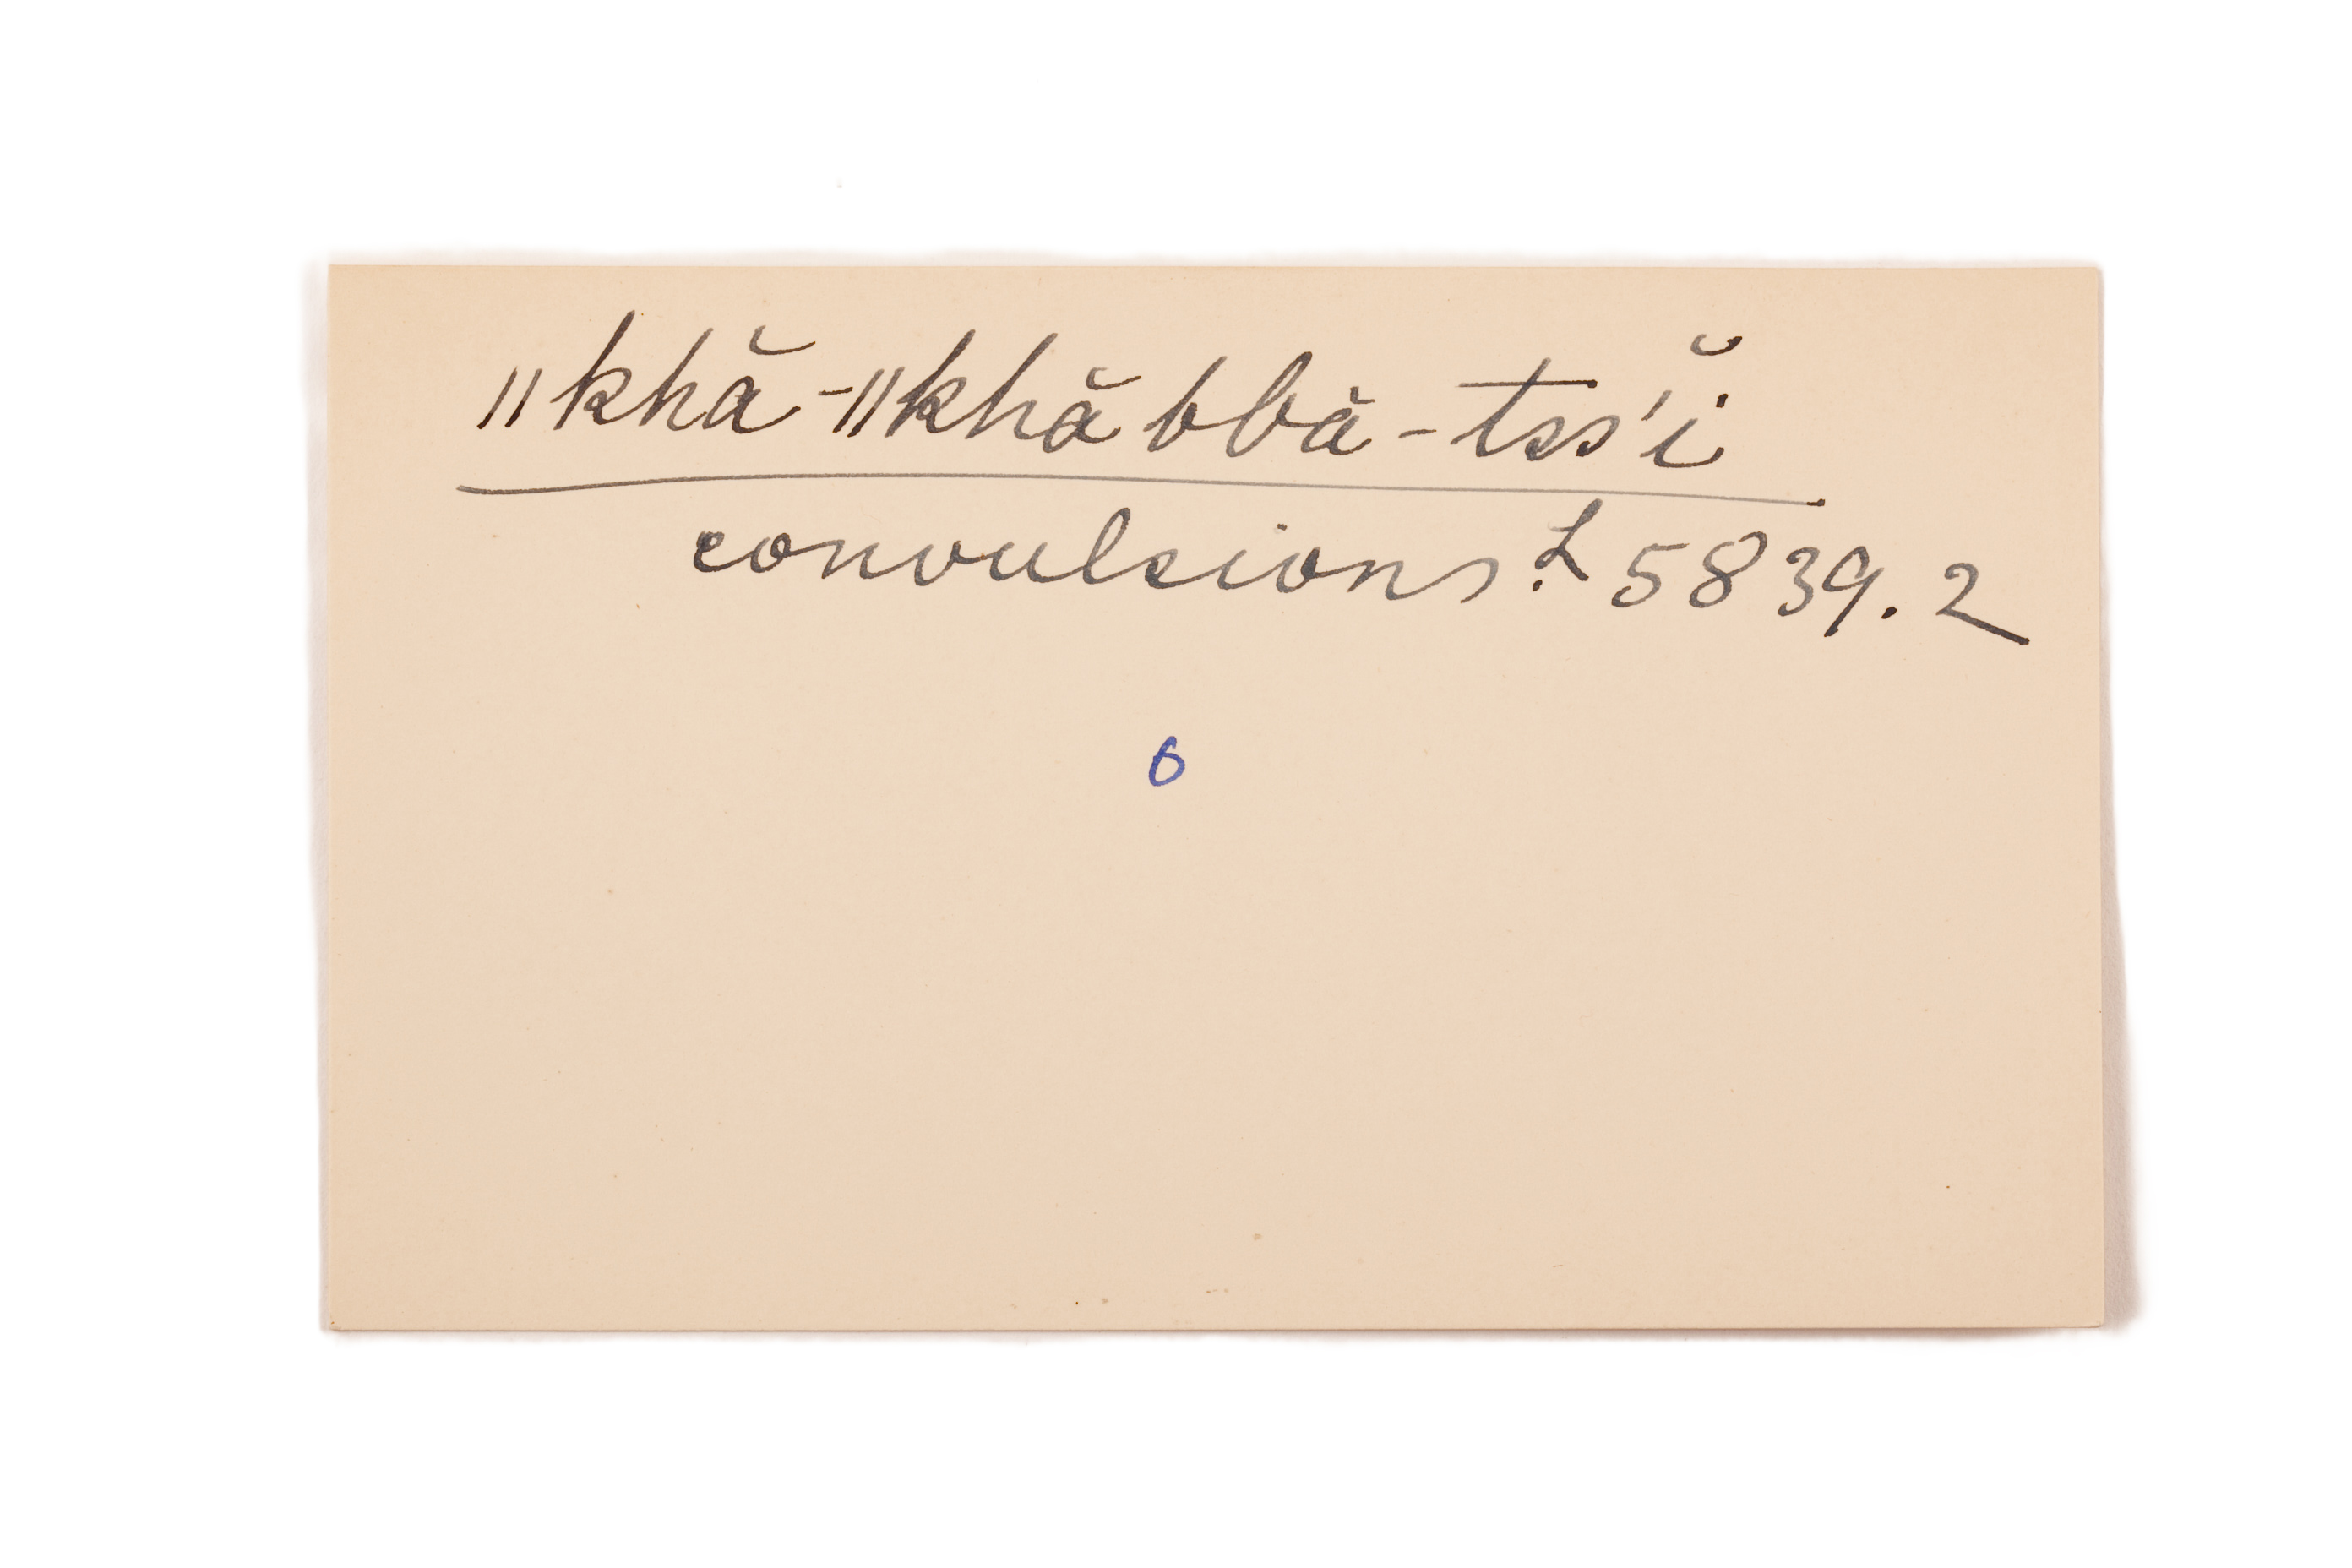 ǁkhă-ǁkhă bbă-tss'ĭ
convulsions. L 5839. 2
6